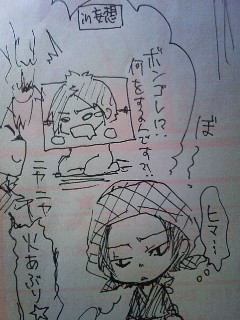 in妄想
ボンゴレ!?
何をするんですか?!
ぼ
ヒマ…
ニヤニヤ
火あぶり☆